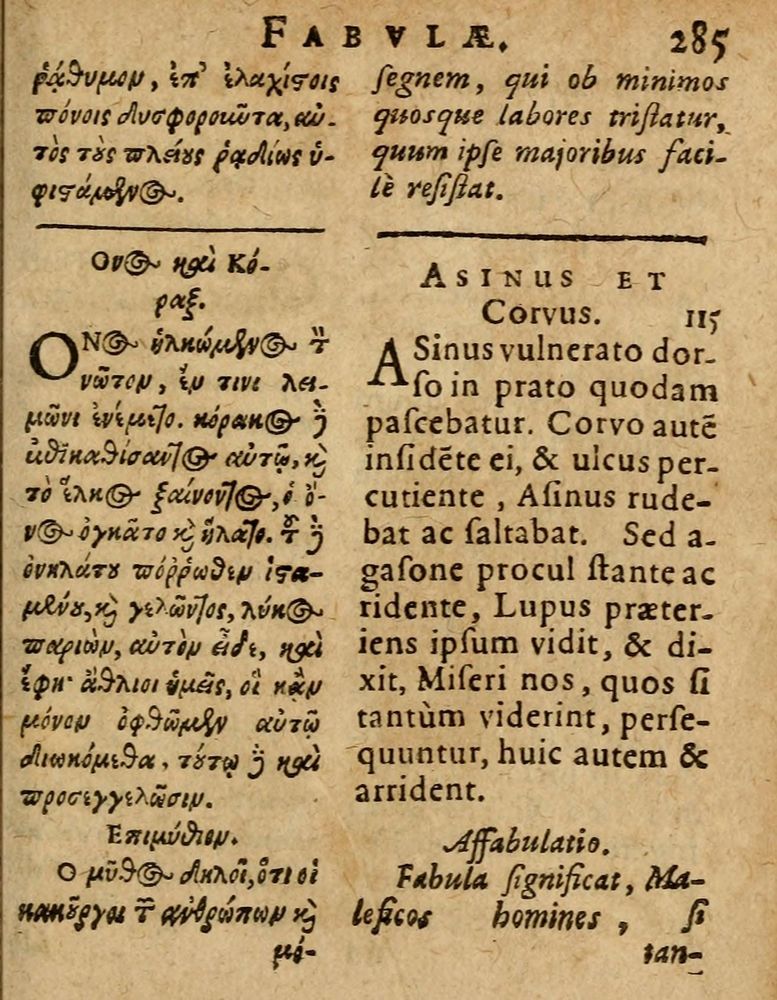 FABVLÆ. 285
ῥᾴθυμον, ἐπ' ἐλαχίστοις
πόνοις δυσφοροῦντα, αὐ-
τὸς τοὺς πλείους ῥᾳδίως ὑ-
φιστάμενος.
Ονος καὶ Κό-
ραξ.
ΟΝος ἡλκώμενος τὸν
νῶτον, ἔν τινι λει-
μῶνι ἐνέμετο. κόρακος δὲ
ἐπικαθίσαντος αὐτῷ, καὶ
τὸ ἕλκος ξαίνοντος, ὁ ὄ-
νος ὀγκᾶτο καὶ ἥλατο. τοῦ δὲ
ὀνηλάτου πόῤῥωθεν ἱστα-
μένου, καὶ γελῶντος, λύκος
παριὼν, αὐτὸν εἶδε, καὶ
ἔφη· ἄθλιοι ἡμεῖς, οἳ κἂν
μόνον ὀφθῶμεν αὐτῷ
διωκόμεθα, τούτῳ δὲ καὶ
προσεγγελῶσιν.
Επιμύθιον.
Ο μῦθος δηλοῖ, ὅτι οἱ
κακοῦργοι τῶν ἀνθρώπων καὶ
μό-
ſegnem, qui ob minimos
quosque labores triſtatur,
quum ipſe majoribus faci-
lè reſiſtat.
ASINUS ET
Corvus. 115
ASinus vulnerato dor-
ſo in prato quodam
paſcebatur. Corvo autē
inſidēte ei, & ulcus per-
cutiente, Aſinus rude-
bat ac ſaltabat. Sed a-
gaſone procul ſtante ac
ridente, Lupus præter-
iens ipſum vidit, & di-
xit, Miſeri nos, quos ſi
tantùm viderint, perſe-
quuntur, huic autem &
arrident.
Affabulatio.
Fabula ſignificat, Ma-
leficos homines, ſi
tan-